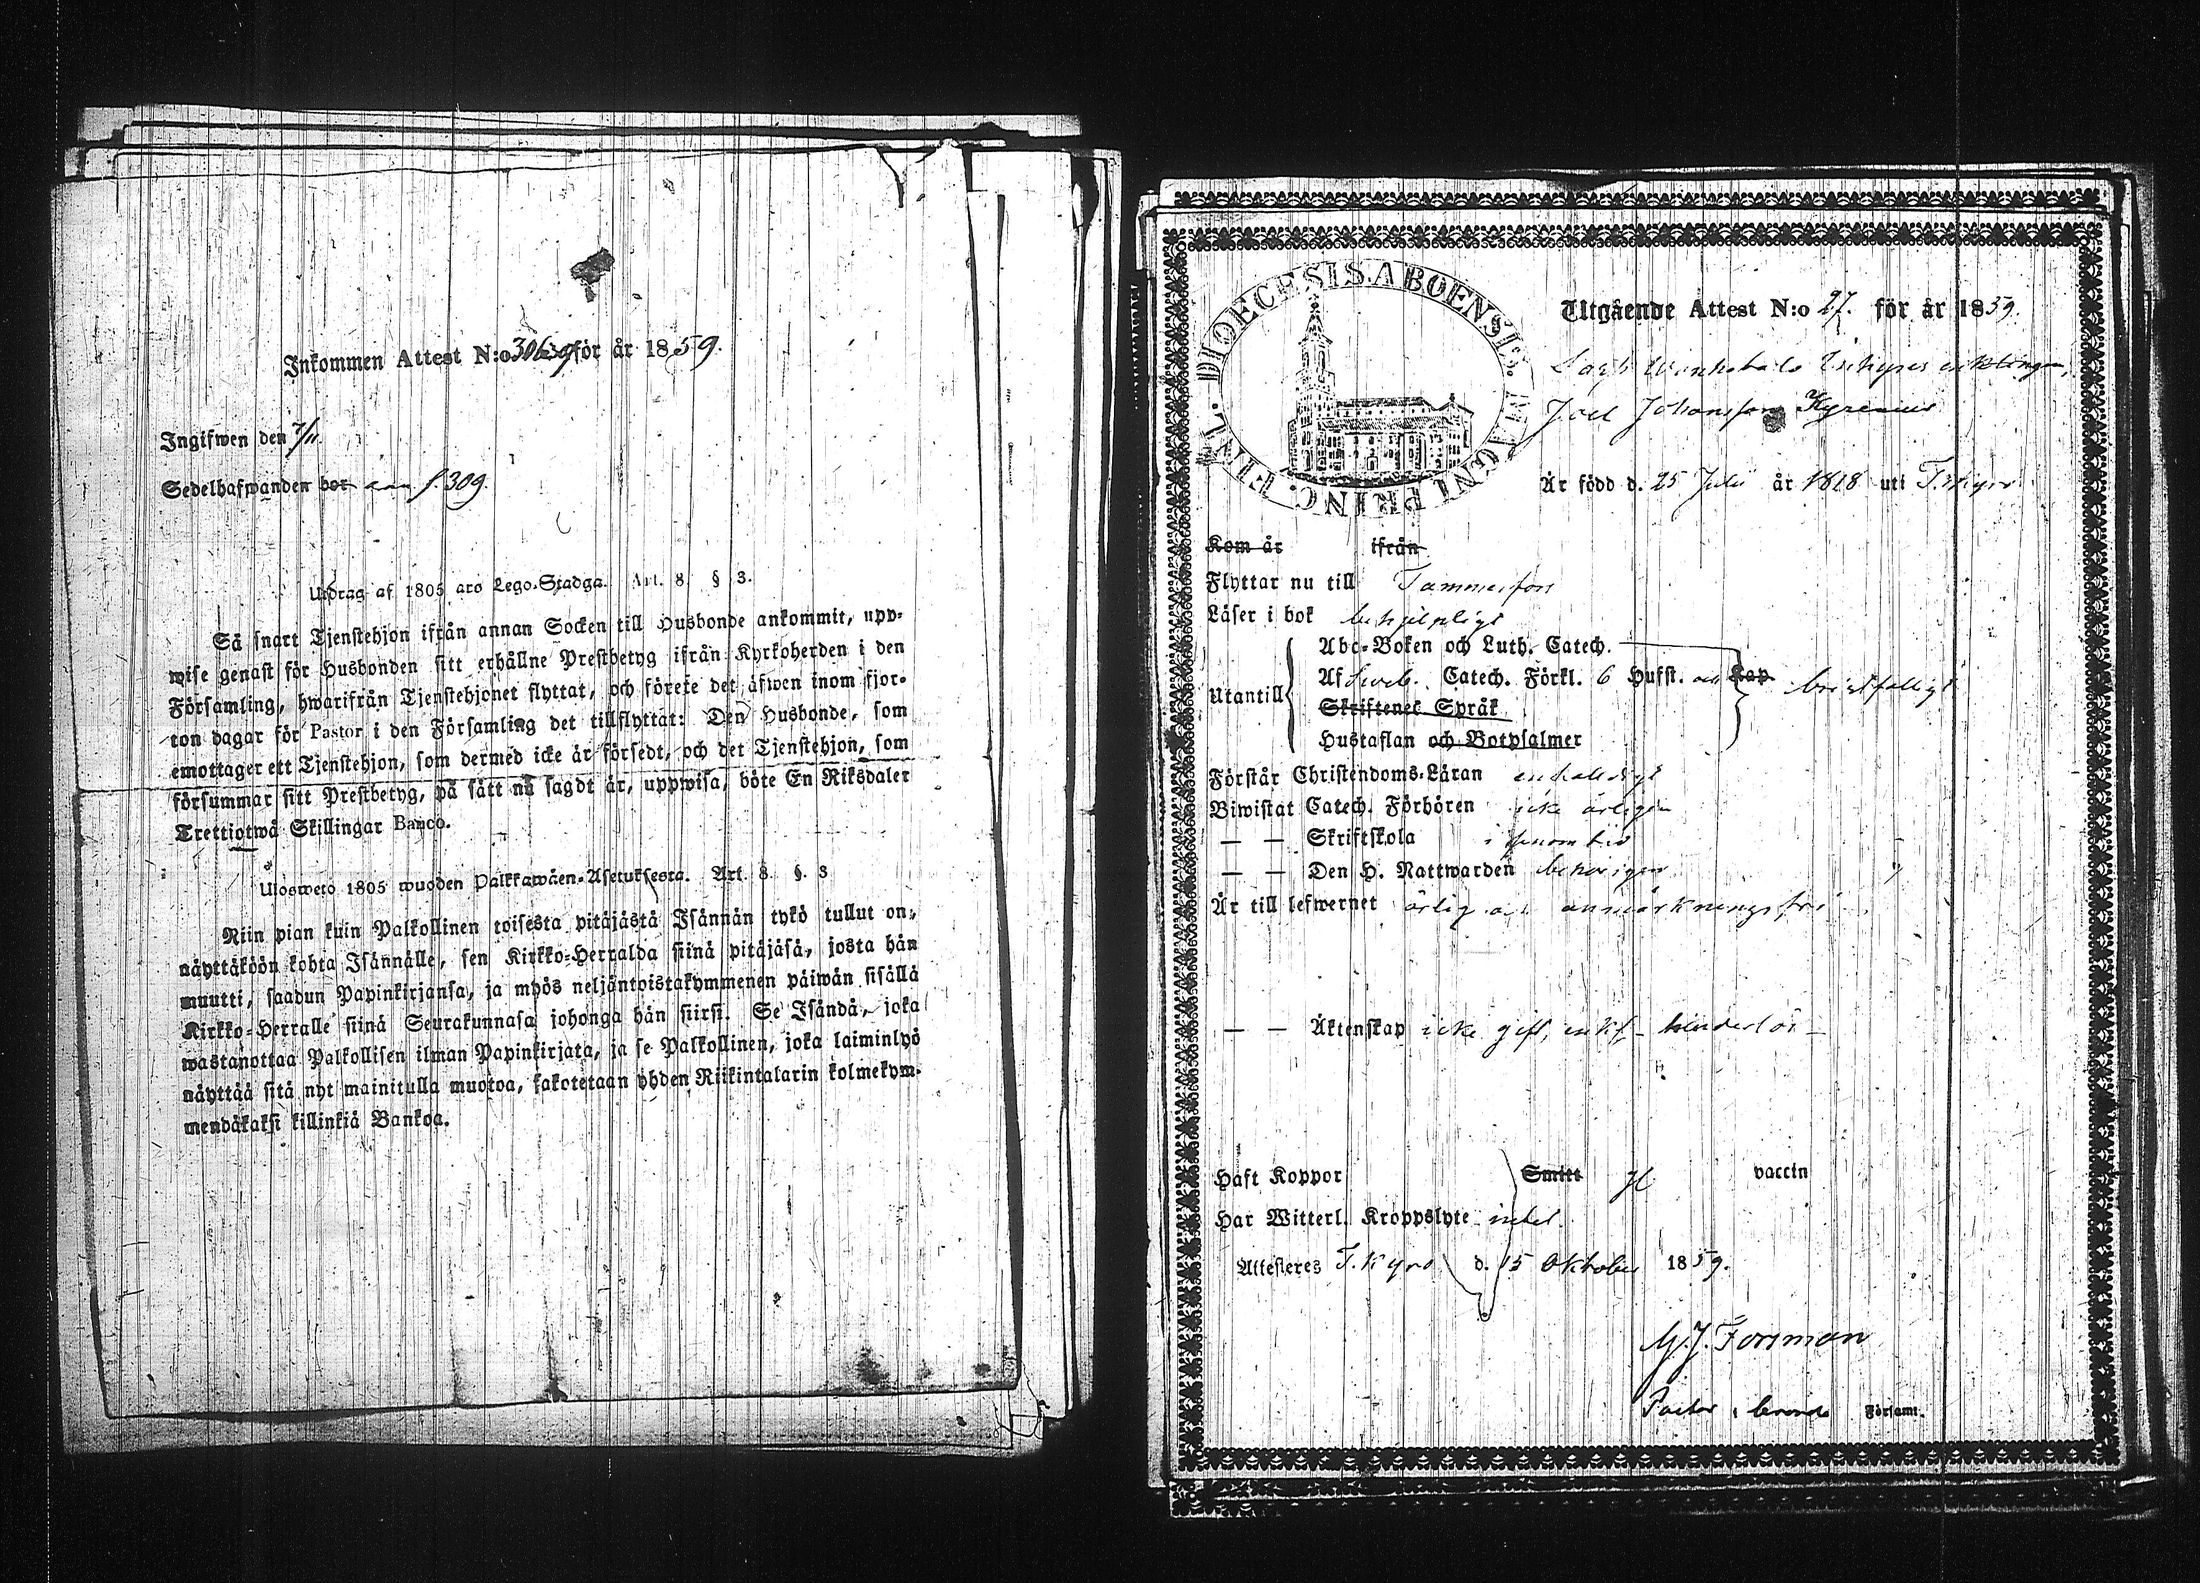 Inkommen Attest N:o 306 för år 1859.
Ingifwen den 7/11.
Sedelhafwanden bor f 309.
Utdrag af 1805 års Lego-Stadga. Art. 8. § 3.
Så snart Tjenstehjon ifrån annan Socken till Husbonde ankommit, upp-
wise genast för Husbonden sitt erhållne Prestbetyg ifrån Kyrkoherden i den
Församling, hwarifrån Tjenstehjonet flyttat, och förete det äfwen inom fjor-
ton dagar för Pastor i den Församling det tillflyttat: Den Husbonde, som
emottager ett Tjenstehjon, som dermed icke är försedt, och det Tjenstehjon, som
försummar sitt Prestbetyg, på sätt nu sagdt är, uppwisa, böte En Riksdaler
Trettiotwå Skillingar Banco.
Ulosweto 1805 wuoden Palkkawäen-Asetuksesta. Art. 8. §. 3
Niin pian kuin Palkollinen toisesta pitäjästä Isännän tykö tullut on,
näyttäköön kohta Isännälle, sen Kirkko-Herralda siinä pitäjäsä, josta hän
muutti, saadun Papinkirjansa, ja myös neljäntoistakymmenen päiwän sisällä
Kirkko-Herralle siinä Seurakunnasa johonga hän siirsi. Se Isändä, joka
wastanottaa Palkollisen ilman Papinkirjata, ja se Palkollinen, joka laiminlyö
näyttää sitä nyt mainitulla muotoa, sakotetaan yhden Riikintalarin kolmekym-
mendäkaksi killinkiä Bankoa.
DIOECESIS ABOENSIS. MAGNI PRINC. FINL.
Utgående Attest N:o 27. för år 1859.
enklingen,
Joel Johansson Kyrenius
Är född d. 25 Julii år 1818 uti T.kyro
Kom år ifrån
Flyttar nu till Tammerfors
Läser i bok behjelpligt
Utantill
Abc-Boken och Luth. Catech.
Af Sweb. Catech. Förkl. 6 Hufst. och Kap. bristfälligt
Skriftenes Språk
Hustaflan och Botpsalmer
Förstår Christendoms-Läran enfaldigt
Biwistat Catech. Förhören icke årligen
— — Skriftskola i
— — Den H. Nattwarden behörigen
Är till lefwernet ärlig och anmärkningsfri
— — Äktenskap icke gift, enkl. hinderlös —
Haft Koppor Smitt vaccin
Har Witterl. Kroppslyte intet.
Attesteres T.kyro d. 15 Oktober 1859.
M. J. Forsman
Pastor i Församl.